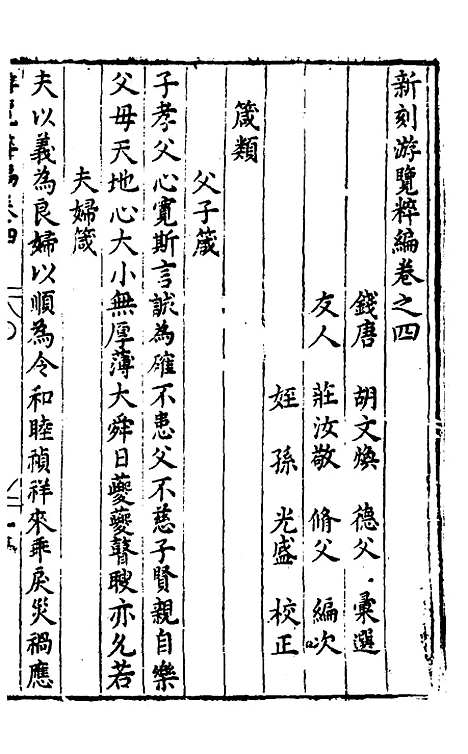 新刻游覽粹編卷之四
錢唐 胡文煥 德父 彙選
友人 莊汝敬 脩父 編次
姪孫 光盛 校正
箴類
父子箴
子孝父心寬斯言誠為確不患父不慈子賢親自樂
父毋天地心大小無厚薄大舜日夔夔瞽瞍亦允若
夫婦箴
夫以義為良婦以順為令和睦禎祥來乖戾災禍應